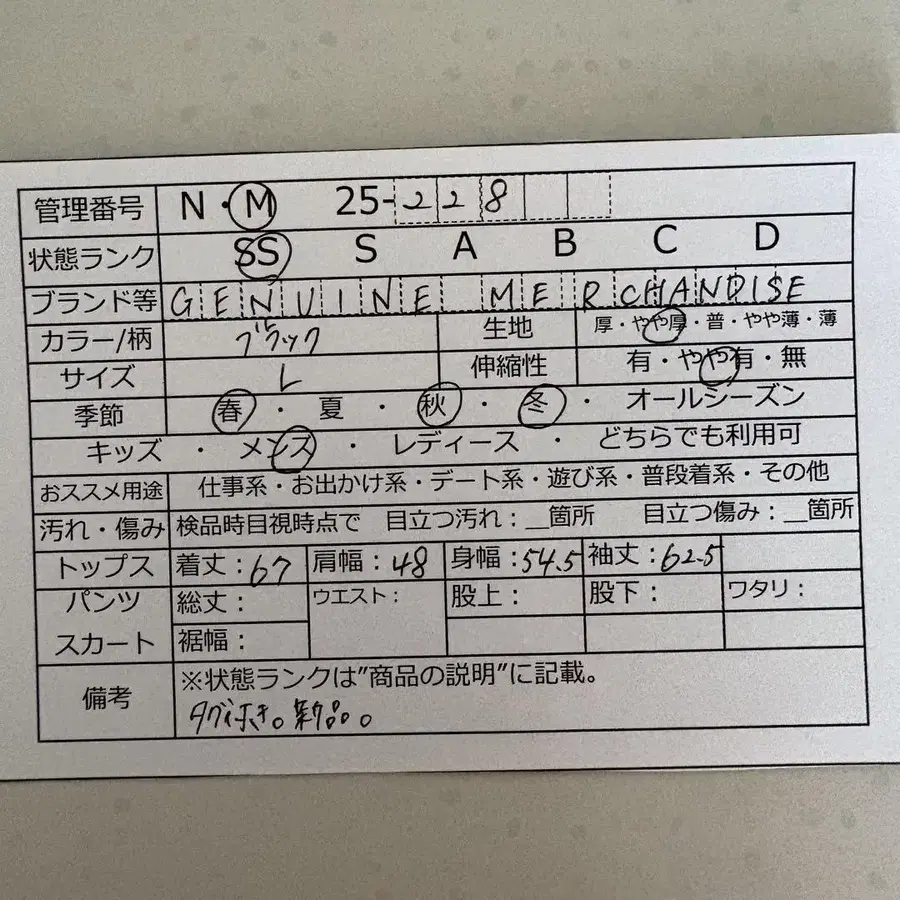 管理番号 N・M 25-228
状態ランク SS S A B C D
ブランド等 GENUINE MERCHANDISE
カラー/柄 ブラック 生地 厚・やや厚・普・やや薄・薄
サイズ L 伸縮性 有・やや有・無
季節 春・夏・秋・冬・オールシーズン
キッズ・メンズ・レディース・どちらでも利用可
おススメ用途 仕事系・お出かけ系・デート系・遊び系・普段着系・その他
汚れ・傷み 検品時目視時点で 目立つ汚れ：__箇所 目立つ傷み：__箇所
トップス 着丈：67 肩幅：48 身幅：54.5 袖丈：62.5
パンツ 総丈： ウエスト： 股上： 股下： ワタリ：
スカート 裾幅：
備考 ※状態ランクは”商品の説明”に記載。
タグ付き。新品。